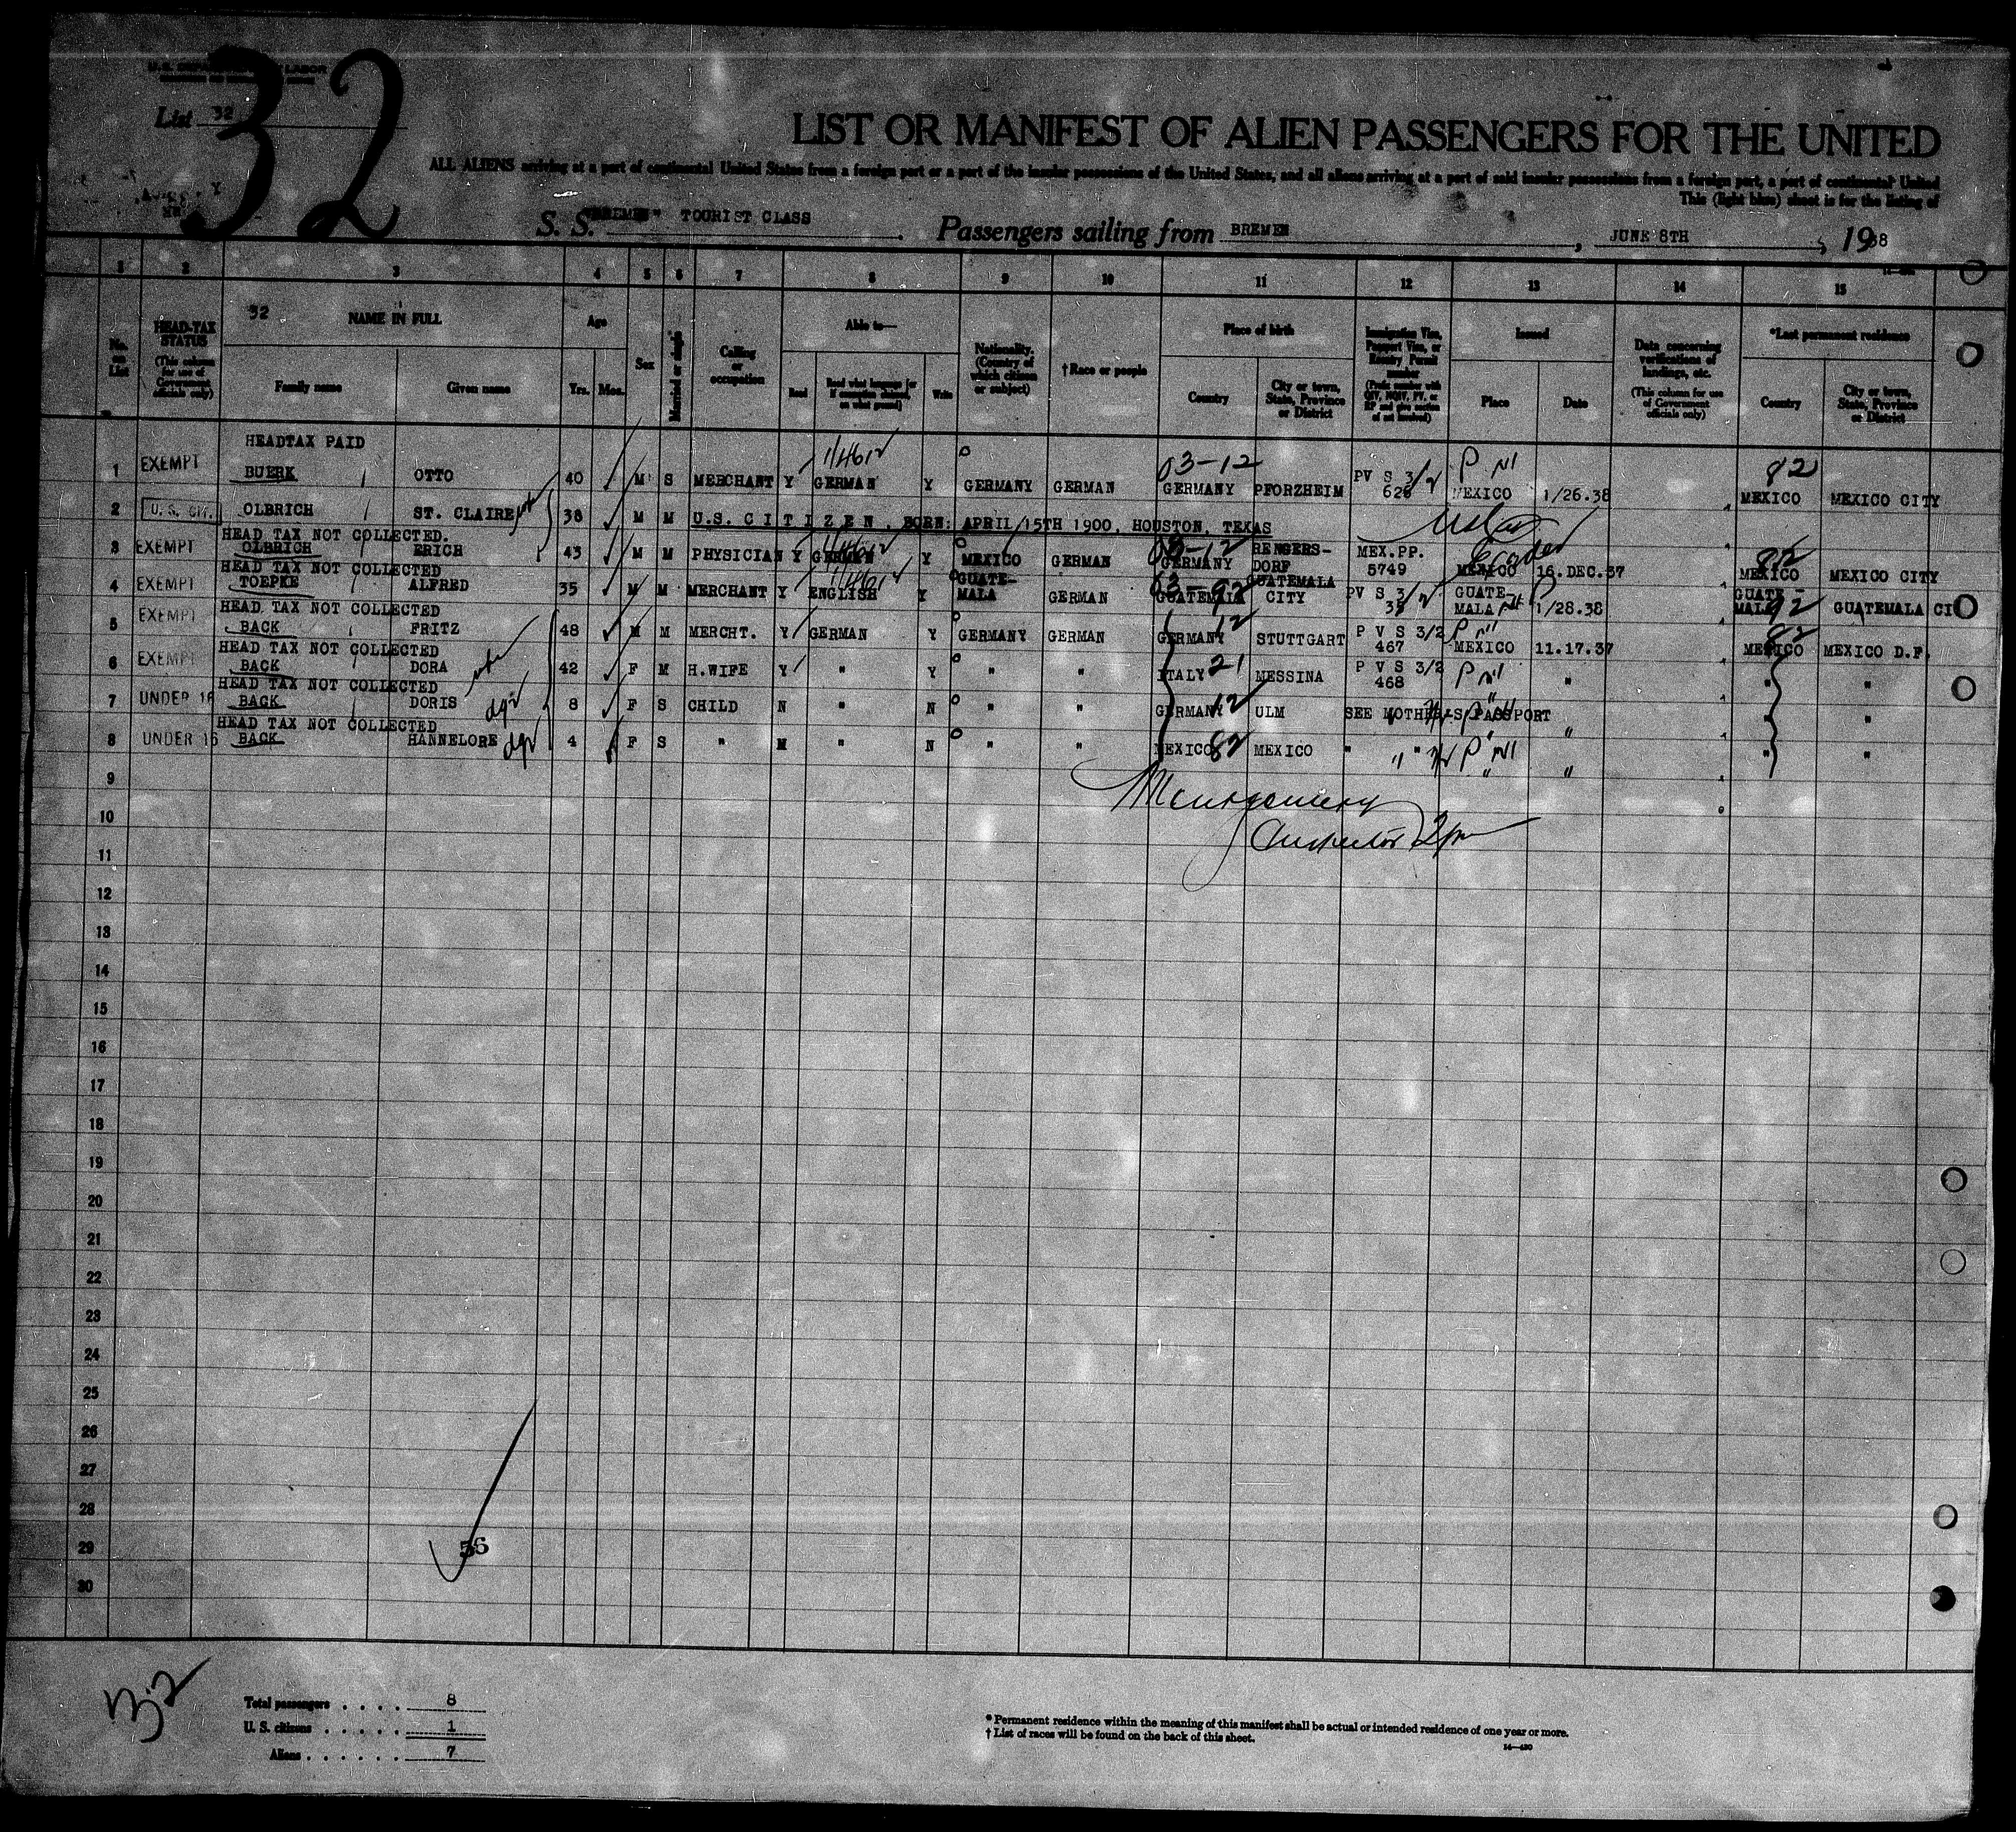 32
List 32
LIST OR MANIFEST OF ALIEN PASSENGERS FOR THE UNITED
ALL ALIENS arriving at a port of continental United States from a foreign port or a port of the insular possessions of the United States, and all aliens arriving at a port of said insular possessions from a foreign port, a port of continental United
This (light blue) sheet is for the listing of
S. S. "BREMEN" TOURIST CLASS. Passengers sailing from BREMEN, JUNE 8TH, 1938
1 2 3 4 5 6 7 8 9 10 11 12 13 14 15
No. on List
HEAD-TAX STATUS (This column for use of Government officials only)
32 NAME IN FULL
Family name Given name
Age
Yrs. Mos.
Sex
Married or single
Calling or occupation
Able to—
Read Read what language [or if exemption claimed, on what ground] Write
Nationality. (Country of which citizen or subject)
† Race or people
Place of birth
Country City or town, State, Province or District
Immigration Visa, Passport Visa, or Reentry Permit number (Prefix number with QIV, NQIV, PV, or RP and give section of act involved)
Issued
Place Date
Data concerning verifications of landings, etc. (This column for use of Government officials only)
*Last permanent residence
Country City or town, State, Province or District
HEADTAX PAID
1 EXEMPT BUERK OTTO 40 M S MERCHANT Y GERMAN Y GERMANY GERMAN 03-12 GERMANY PFORZHEIM PV S 3/2 628 MEXICO 1/26.38 82 MEXICO MEXICO CITY
2 U.S. CIT. OLBRICH ST. CLAIRE 38 M M U.S. CITIZEN, BORN: APRIL 15TH 1900, HOUSTON, TEXAS
HEAD TAX NOT COLLECTED.
3 EXEMPT OLBRICH ERICH 43 M M PHYSICIAN Y GERMAN Y MEXICO GERMAN GERMANY RENGERS-DORF MEX.PP. 5749 MEXICO 16.DEC.37 82 MEXICO MEXICO CITY
HEAD TAX NOT COLLECTED
4 EXEMPT TOEPKE ALFRED 35 M M MERCHANT Y ENGLISH Y GUATE-MALA GERMAN GUATEMALA GUATEMALA CITY PV S 3/2 GUATE-MALA 1/28.38 GUATE-MALA 92 GUATEMALA CI
HEAD TAX NOT COLLECTED
5 EXEMPT BACK FRITZ 48 M M MERCHT. Y GERMAN Y GERMANY GERMAN GERMANY 12 STUTTGART P V S 3/2 467 MEXICO 11.17.37 82 MEXICO MEXICO D.F.
HEAD TAX NOT COLLECTED
6 EXEMPT BACK DORA 42 F M H.WIFE Y " Y " " ITALY 21 MESSINA P V S 3/2 468 " " " "
HEAD TAX NOT COLLECTED
7 UNDER 16 BACK DORIS dgr 8 F S CHILD N " N " " GERMANY 12 ULM SEE MOTHER'S PASSPORT " " "
HEAD TAX NOT COLLECTED
8 UNDER 16 BACK HANNELORE dgr 4 F S " N " N " " MEXICO 82 MEXICO " " " " " "
9
Montgomery
10
Inspector
11
12
13
14
15
16
17
18
19
20
21
22
23
24
25
26
27
28
29 56
30
32
Total passengers . . . . 8
U. S. citizens . . . . . 1
Aliens . . . . . . 7
* Permanent residence within the meaning of this manifest shall be actual or intended residence of one year or more.
† List of races will be found on the back of this sheet.